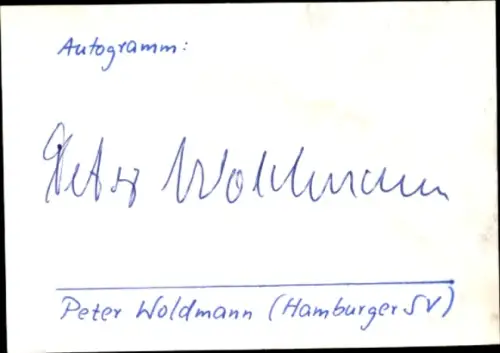 Autogramm:
Peter Woldmann
Peter Woldmann (Hamburger SV)